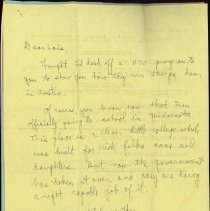 Dear Lois,
Thought I'd dash off a program to
you to show you how they run things down
in Austin.
Of course you know now that I'm
officially going to school in
This place is a little college which
was built for rich folks sons and
daughters. But now the government
has taken it over and they are doing
a right job of it.